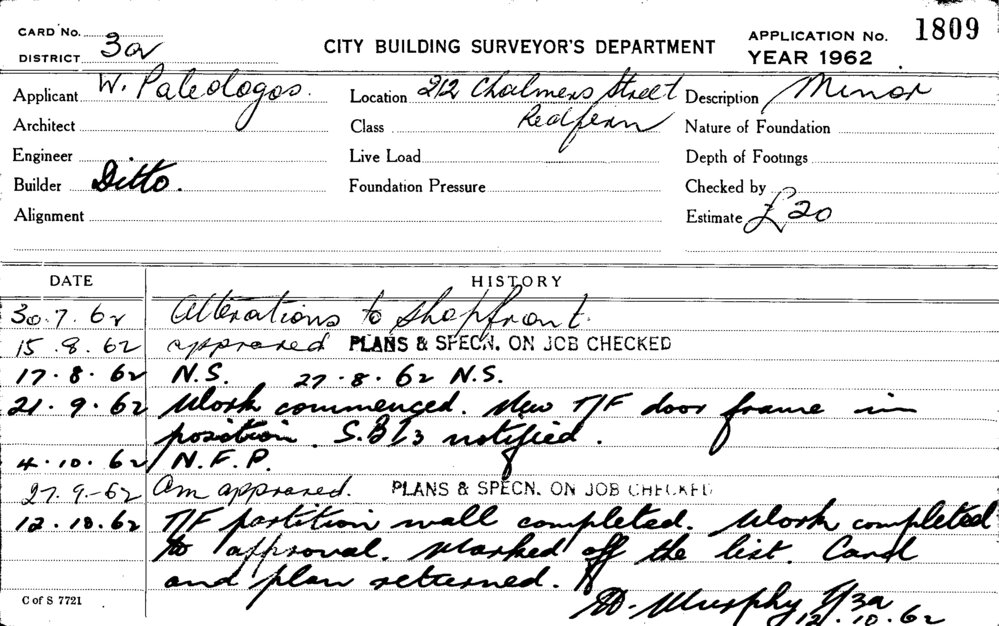 CARD No.
DISTRICT 3a
CITY BUILDING SURVEYOR'S DEPARTMENT
APPLICATION No. 1809
YEAR 1962
Applicant W. Paleologos.
Location 212 Chalmers Street
Redfern
Description Minor
Architect
Class
Nature of Foundation
Engineer
Live Load
Depth of Footings
Builder Ditto.
Foundation Pressure
Checked by
Alignment
Estimate £20
DATE HISTORY
30.7.62 Alterations to shopfront.
15.8.62 approved PLANS & SPECN. ON JOB CHECKED
17.8.62 N.S. 27.8.62 N.S.
21.9.62 Work commenced. New T/F door frame in
position. S.B.I.3 notified.
4.10.62 N.F.P.
27.9.-62 Am approved. PLANS & SPECN. ON JOB CHECKED
12.10.62 T/F partition wall completed. Work completed
to approval. Marked off the list. Card
and plan returned.
Murphy 3a
12.10.62
C of S 7721